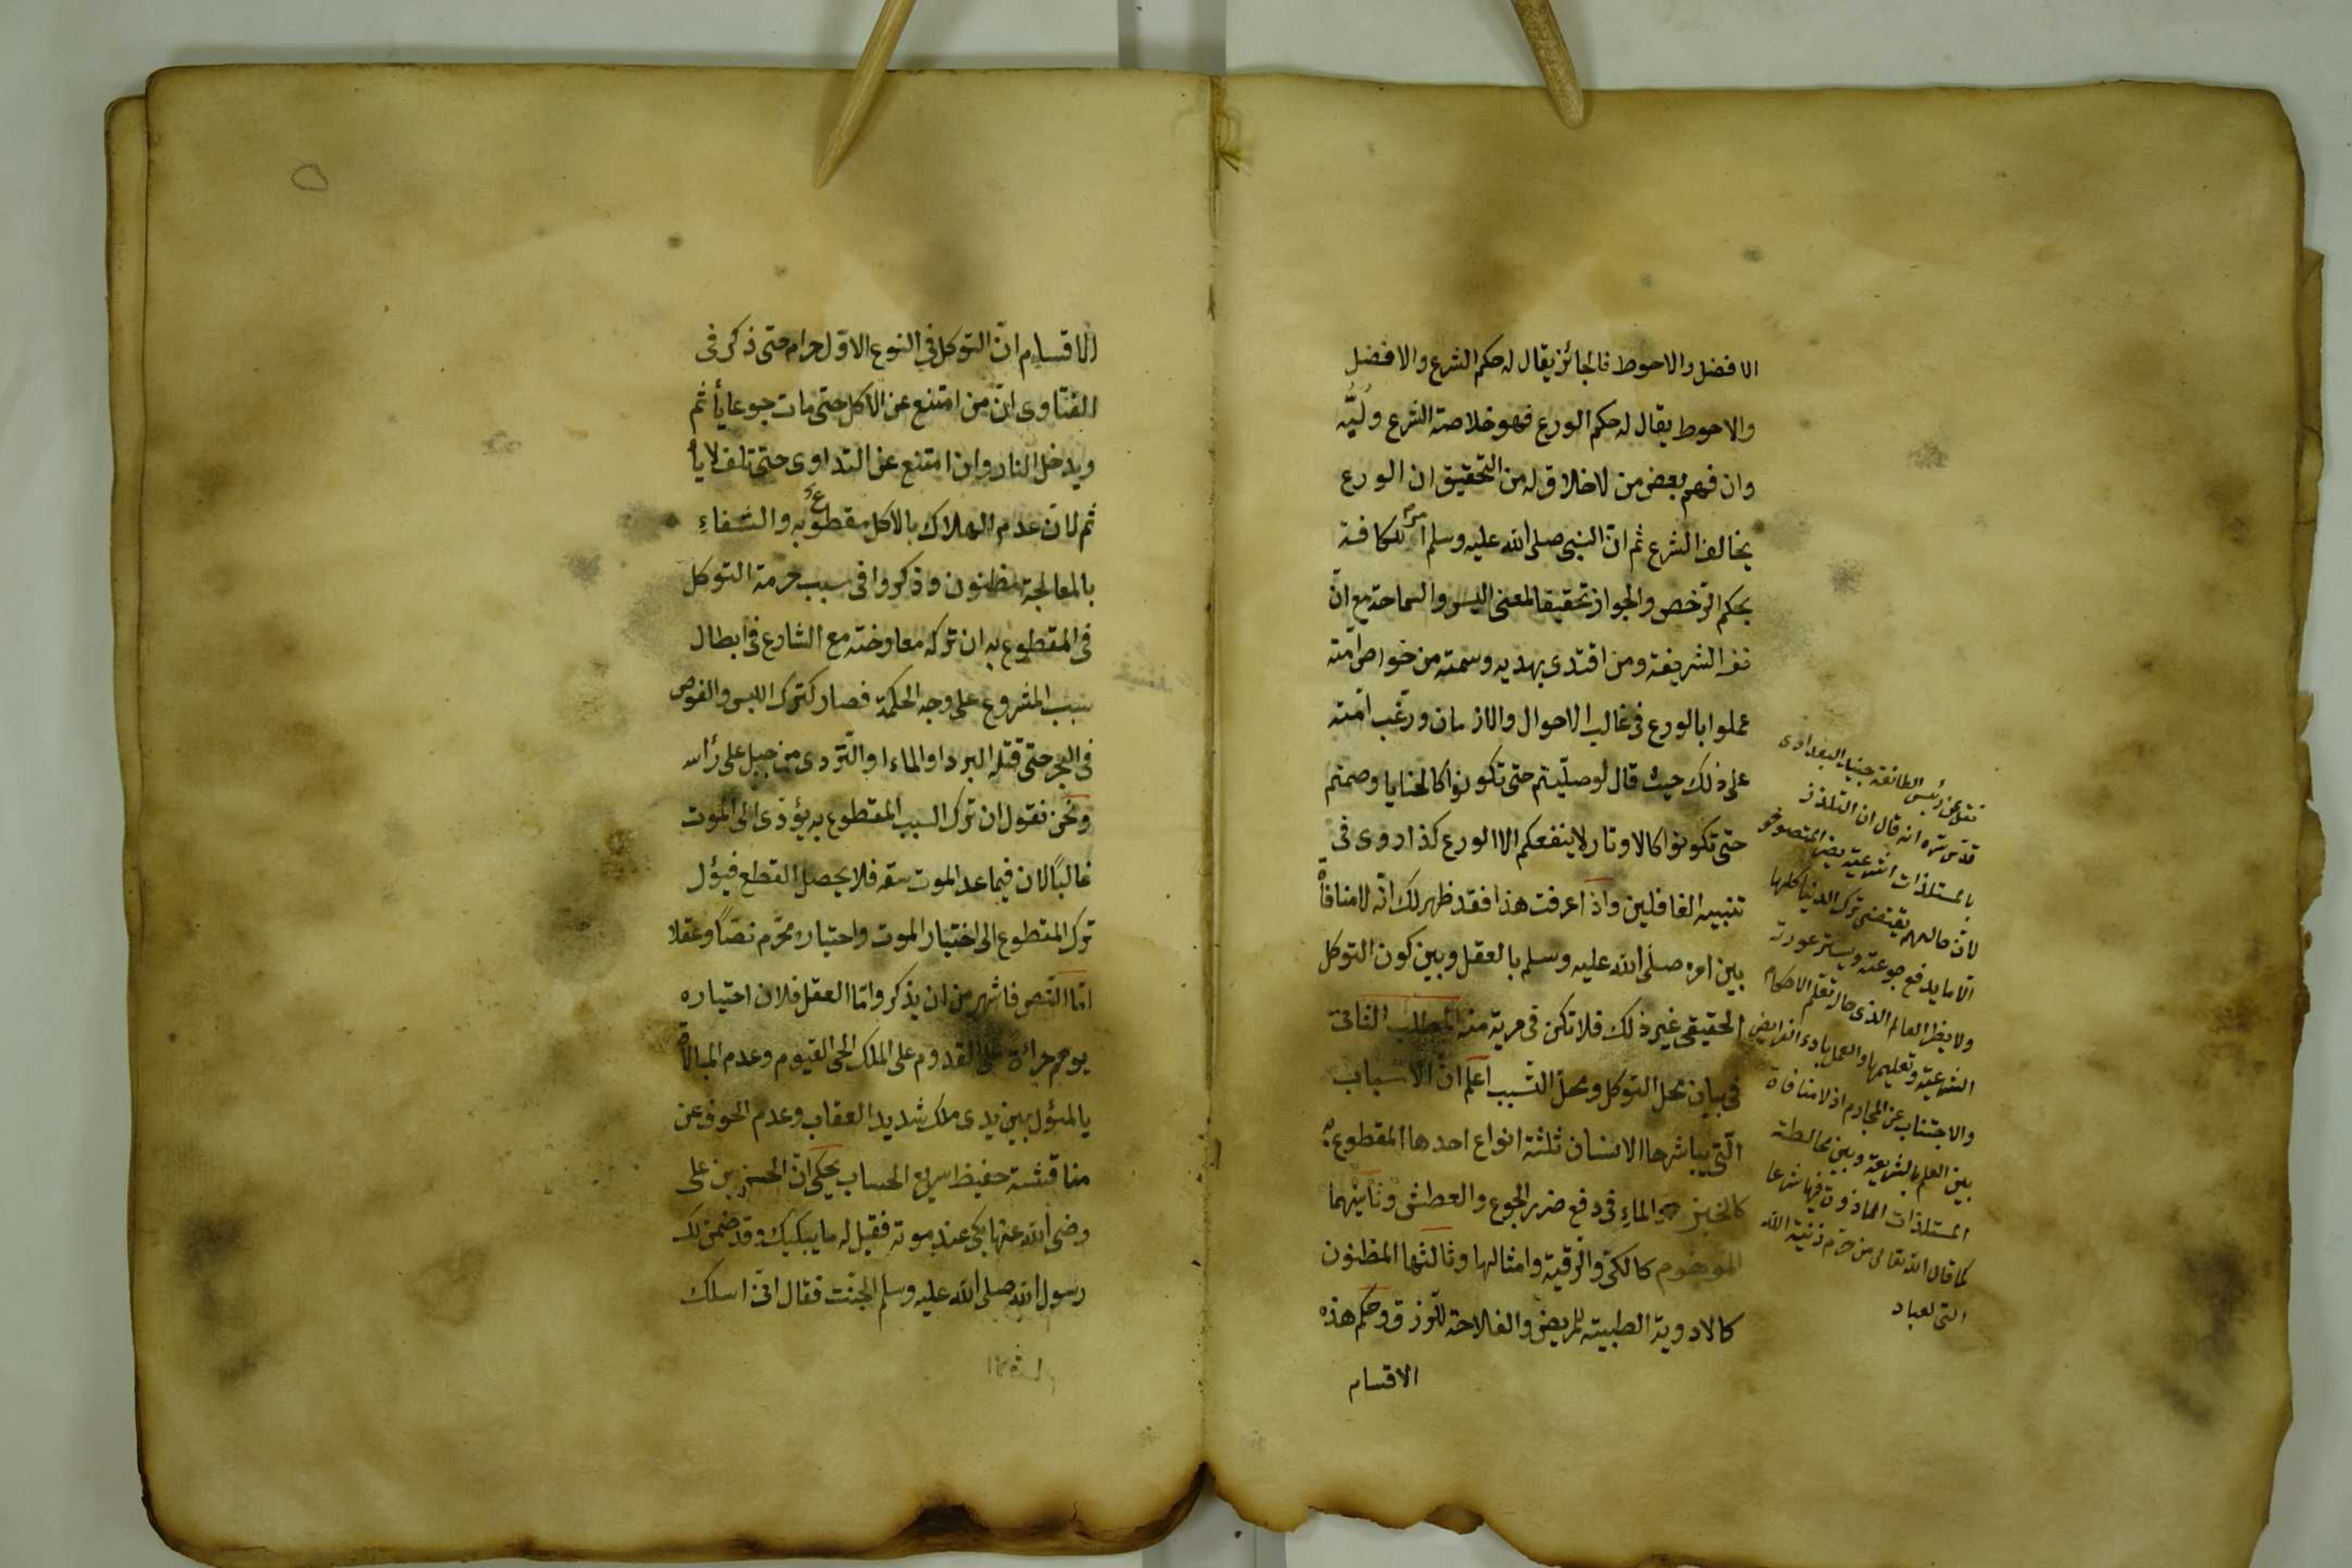 الافضل والاحوط فالجائز يقال له حكم الشرع والافضل
والاحوط يقال له حكم الورع فهو خلاصة الشرع ولُبُّه
وان فهم بعض من لا خلاق له من التحقيق ان الورع
يخالف الشرع ثم انّ النبي صلى الله عليه وسلم امر للكافة
بحكم الترخص والجواز تحقيقا لمعنى اليسر والسماحة مع انّ
نفسه الشريفة ومن اقتدى بهديه وسمته من خواص امّته
عملوا بالورع فى غالب الاحوال والازمان ورغّب امّته
على ذلك حيث قال لو صلّيتم حتى تكونوا كالحنايا وصمتم
حتى تكونوا كالاوتار لا ينفعكم الا الورع كذا روى فى
تنبيه الغافلين واذا عرفت هذا فقد ظهر لك انّه لا منافاة
بين امره صلى الله عليه وسلم بالعقل وبين كون التوكل
الحقيقى غير ذلك فلا تكن فى مرية منه المطلب الثانى
فى بيان محل التوكل ومحلّ التسبب اعلم انّ الاسباب
الّتى يباشرها الانسان ثلثة انواع احدها المقطوع به
كالخبز والماء فى دفع ضرر الجوع والعطش وثانيهما
الموهوم كالكىّ والرّقية وامثالها وثالثها المظنون
كالادوية الطبية للمريض والفلاحة للرزق وحكم هذه
الاقسام
نقل عن رئيس الطائفة جنيد البغدادى
قدّس سرّه انه قال ان التلذذ
بالمستلذات الشرعيّة يضر المتصوفة
لانّ حالهم يقتضى ترك الدنيا كلها
الّا ما يدفع جوعته ويستر عورته
ولا يضر العالم الذى حاله تعلم الاحكام
الشرعيّة وتعليمها والعمل باداء الفرايض
والاجتناب عن المحارم اذ لا منافاة
بين العلم بالشريعة وبين مخالطة
المستلذات الماذون فيها شرعا
كما قال الله تعالى من حرّم زينة الله
التى لعباد
الاقسام انّ التوكل فى النوع الاوّل حرام حتى ذكر فى
الفتاوى انّ من امتنع عن الاكل حتى مات جوعا يأثم
ويدخل النار وان امتنع عن التداوى حتى تلف لا يأ
ثم لانّ عدم الهلاك بالاكل مقطوع به والشفاء
بالمعالجة مظنون وذكروا فى سبب حرمة التوكل
فى المقطوع به ان تركه معارضة مع الشارع فى ابطال
سبب المشروع على وجه الحكمة فصار كترك اللبس والغوص
فى البحر حتى قتله البرد او الماء او التّردى من جبل على رأسه
ونحن نقول ان ترك السبب المقطوع به يؤدى الى الموت
غالبًا لان فيما عد الموت سقه فلا يحصل القطع فيؤل
ترك المقطوع الى اختيار الموت واختياره محرّم نصًا وعقلا
امّا النّص فاشهر من ان يذكر وامّا العقل فلان اختياره
يوهم جرائة على القدوم على الملك الحى القيوم وعدم المبالاة
بالمثول بين يدى ملك شديد العقاب وعدم الخوف عن
مناقشة حفيظ سريع الحساب يحكى انّ الحسن بن على
رضى الله عنها بكى عند موته فقيل له ما يبكيك وقد ضمن لك
رسول الله صلى الله عليه وسلم الجنّت فقال انّى اسلك